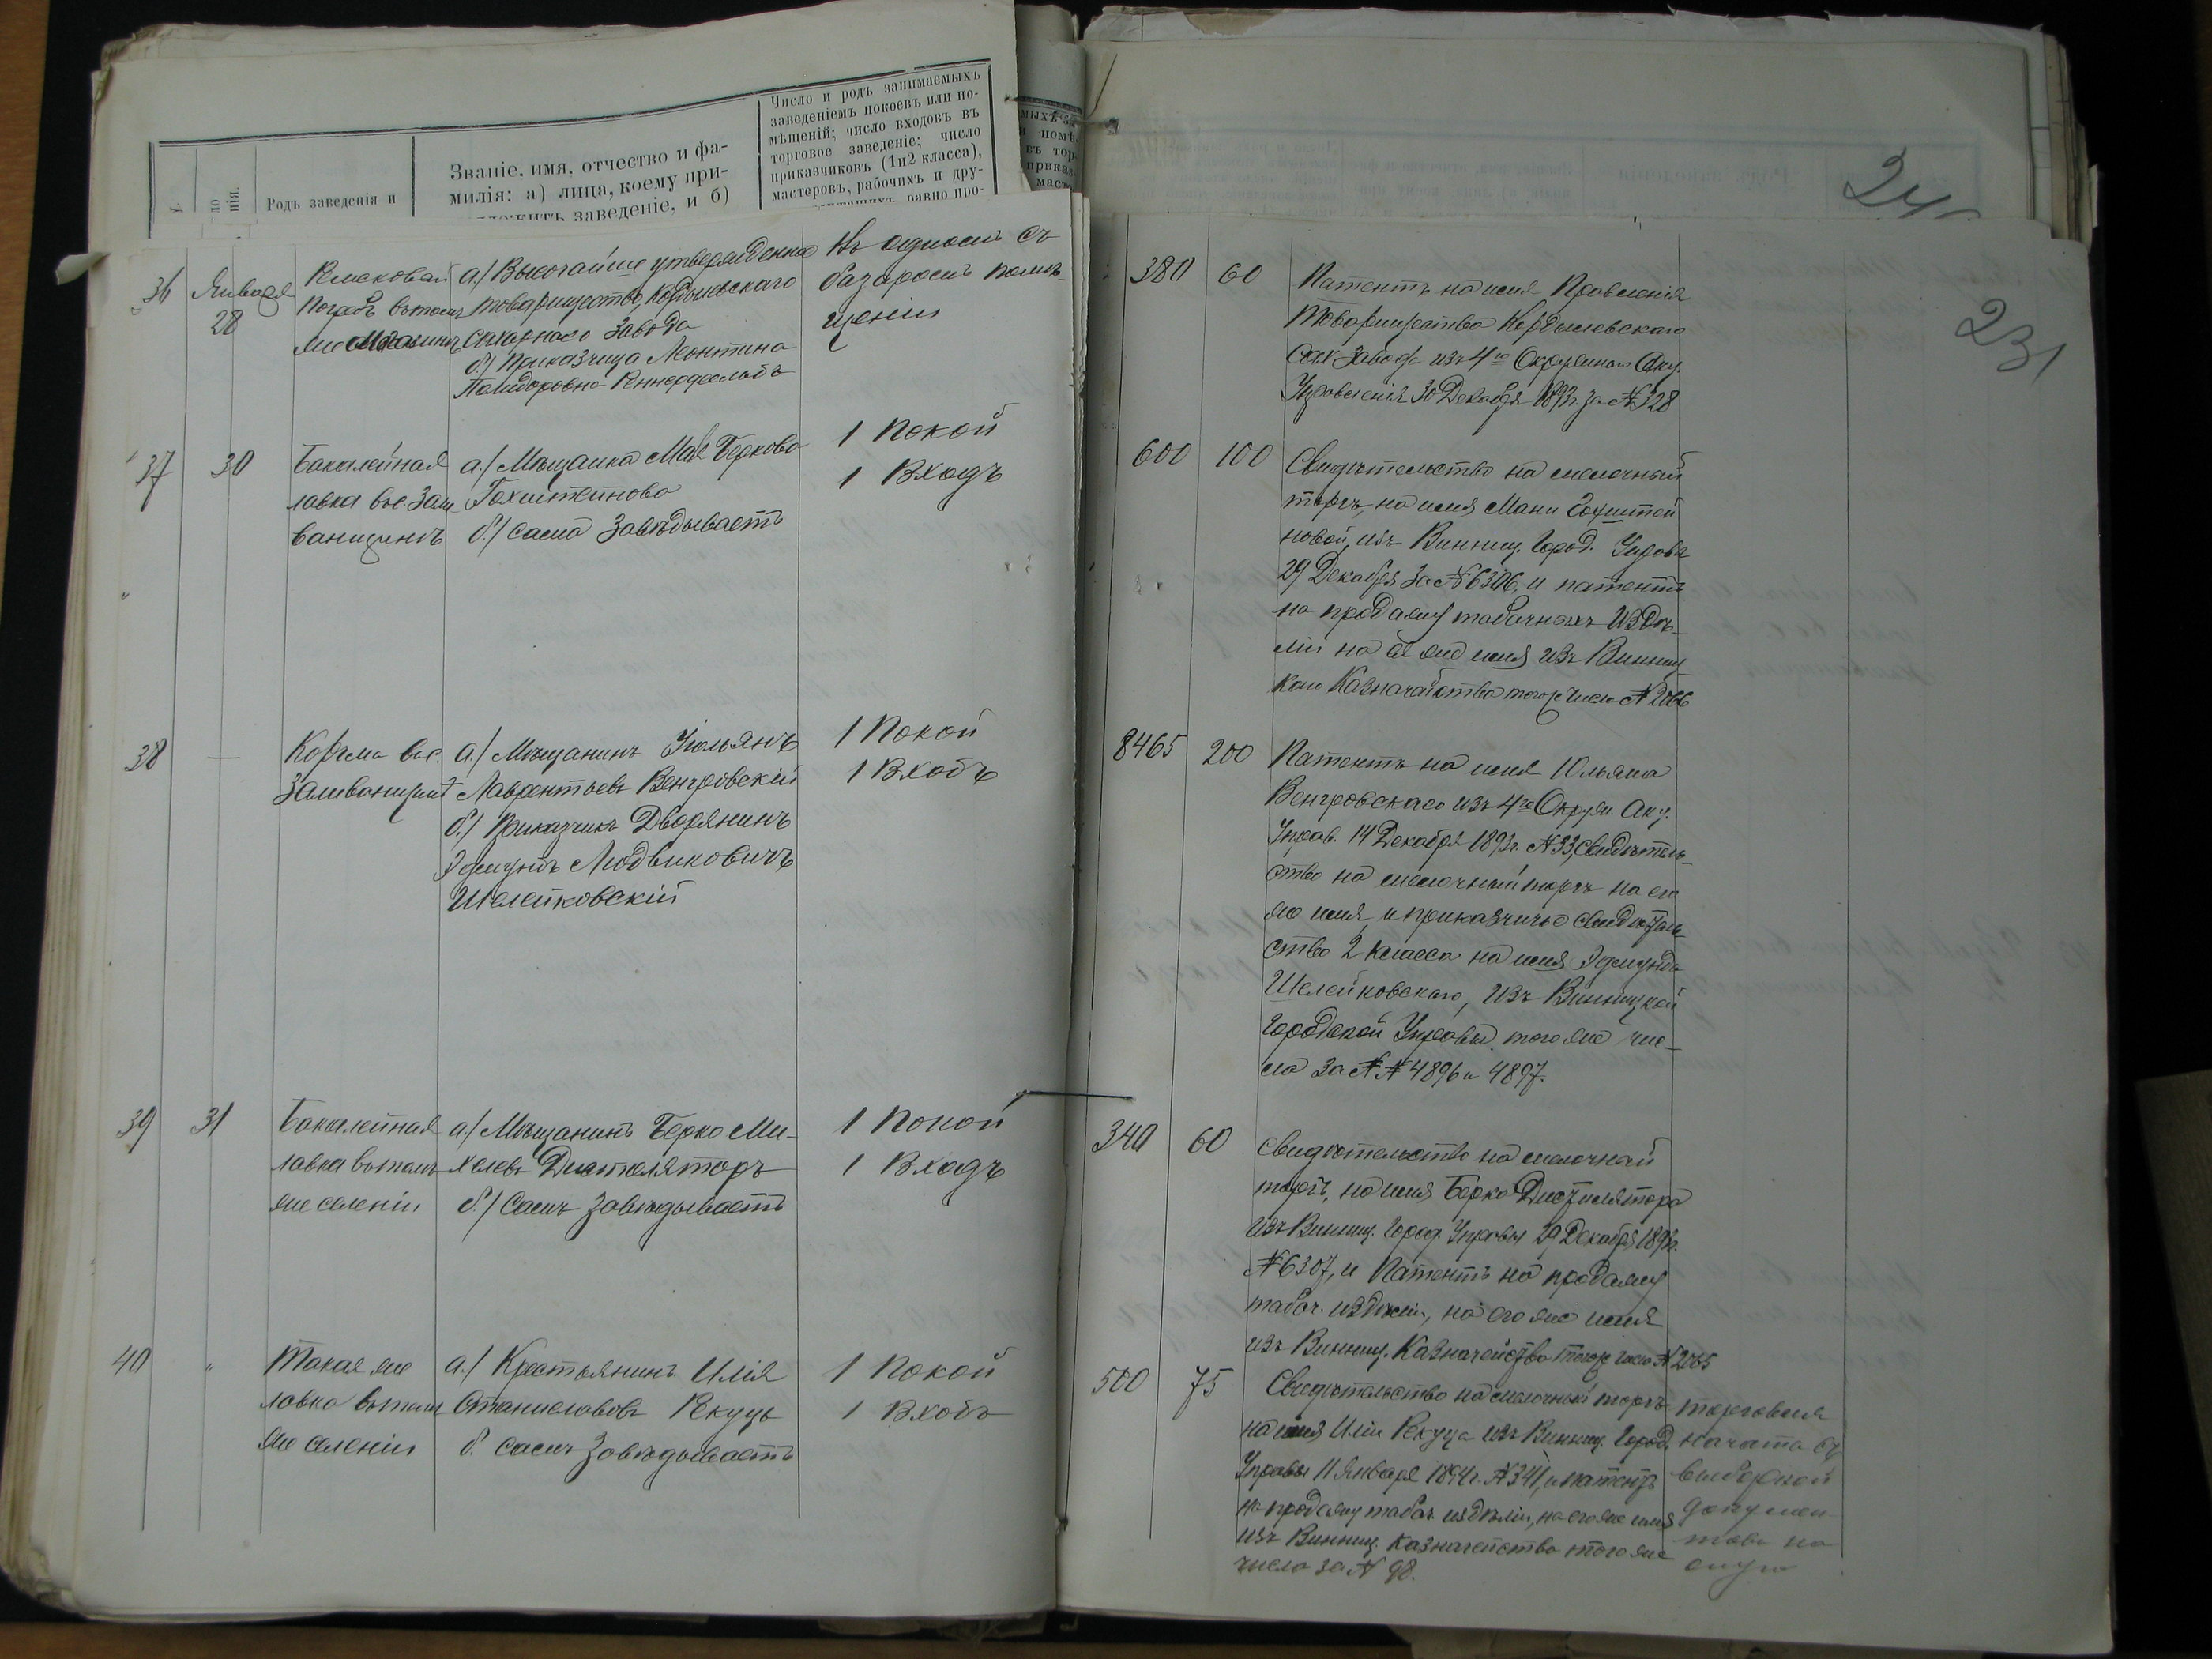 Родъ заведенія и
Званіе, имя, отчество и фа-
милія: а) лица, коему при-
заведеніе, и б)
Число и родъ занимаемыхъ
заведеніемъ покоевъ или по-
мѣщеній; число входовъ въ
торговое заведеніе; число
приказчиковъ (1 и 2 класса),
мастеровъ, рабочихъ и дру-
равно про-
231
36 Января 28
погребъ въ томъ
же
а) Высочайше утвержденное
товарищество Кордышевскаго
сахарнаго завода
б) Приказчица Леонтина
въ одномъ съ
базаромъ помѣ-
щеніи
380 60
Патентъ на имя Правленія
Товарищества Кордышевскаго
Сах. Завода изъ 4го Окружнаго Акц.
Управленія 30 Декабря 1893г. за № 328
37 30
Бакалейная
лавка въ с. Зали
ванщинѣ
а) Мѣщанка Берковa
Гохштейнова
б) сама завѣдываетъ
1 Покой
1 Входъ
600 100
Свидѣтельство на мелочный
торгъ, на имя Мани Гохштей
новой, изъ Винниц. Город. Управы
29 Декабря за № 6306, и патентъ
на продажу табачныхъ издѣ-
лій на ея же имя изъ Винниц
каго Казначейства того ж числа № 2066
38 —
Корчма въ с.
Заливанщинѣ
а) Мѣщанинъ Юльянъ
Лаврентьевъ Венгровскій
б) Приказчикъ Дворянинъ
Эдмундъ Людвиковичъ
Шелейковскій
1 Покой
1 Входъ
8465 200
Патентъ на имя Юльяна
Венгровскаго изъ 4го Окруж. Акц.
Управ. 14 Декабря 1893г. № 33, Свидѣтель-
ство на мелочный торгъ на его
же имя, и приказчичье свидѣтель-
ство 2 класса на имя Эдмунда
Шелейковскаго, изъ Винницкой
Городской Управы того же чис-
ла за №№ 4896 и 4897.
39 31
Бакалейная
лавка въ томъ
же селеніи
а) Мѣщанинъ Берко Ми-
хелевъ Дистиляторъ
б) Самъ завѣдываетъ
1 Покой
1 Входъ
340 60
Свидѣтельство на мелочный
торгъ, на имя Берка Дистилятора
изъ Винниц. Город. Управы 29 Декабря 1893г.
№ 6307, и Патентъ на продажу
табач. издѣлій, на его же имя
изъ Винниц. Казначейства того ж числа № 2065
40 "
Такая же
лавка въ томъ
же селеніи
а) Крестьянинъ Илія
Станиславовъ Рекуцъ
б. самъ завѣдываетъ
1 Покой
1 Входъ
500 75
Свидѣтельство на мелочный торгъ
на имя Иліи Рекуца изъ Винниц. Город.
Управы 11 Января 1894г. № 341, и патентъ
на продажу табач. издѣлій, на его же имя
изъ Винниц. Казначейства того же
числа за № 98.
торговля
начата съ
выборкой
докумен-
товъ на
оную